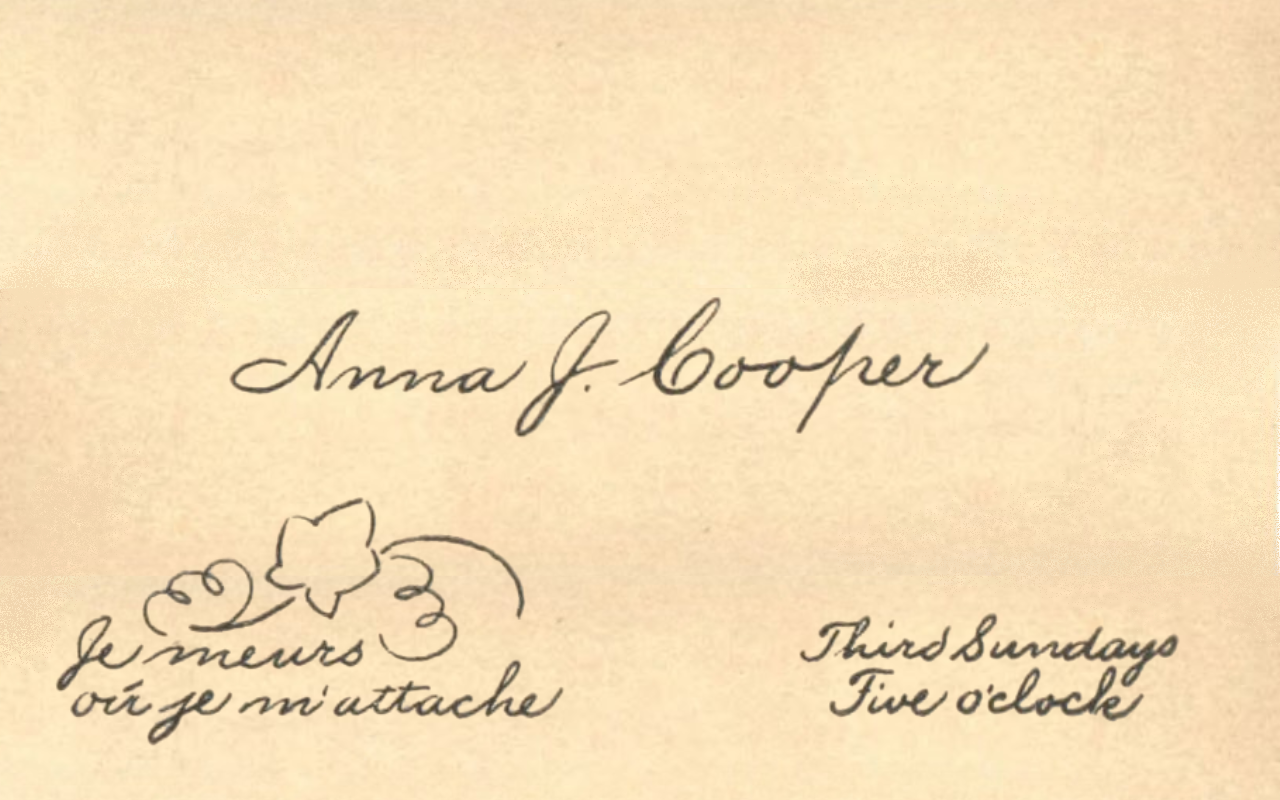 Anna J. Cooper
Je meurs
où je m'attache
Third Sundays
Five o'clock